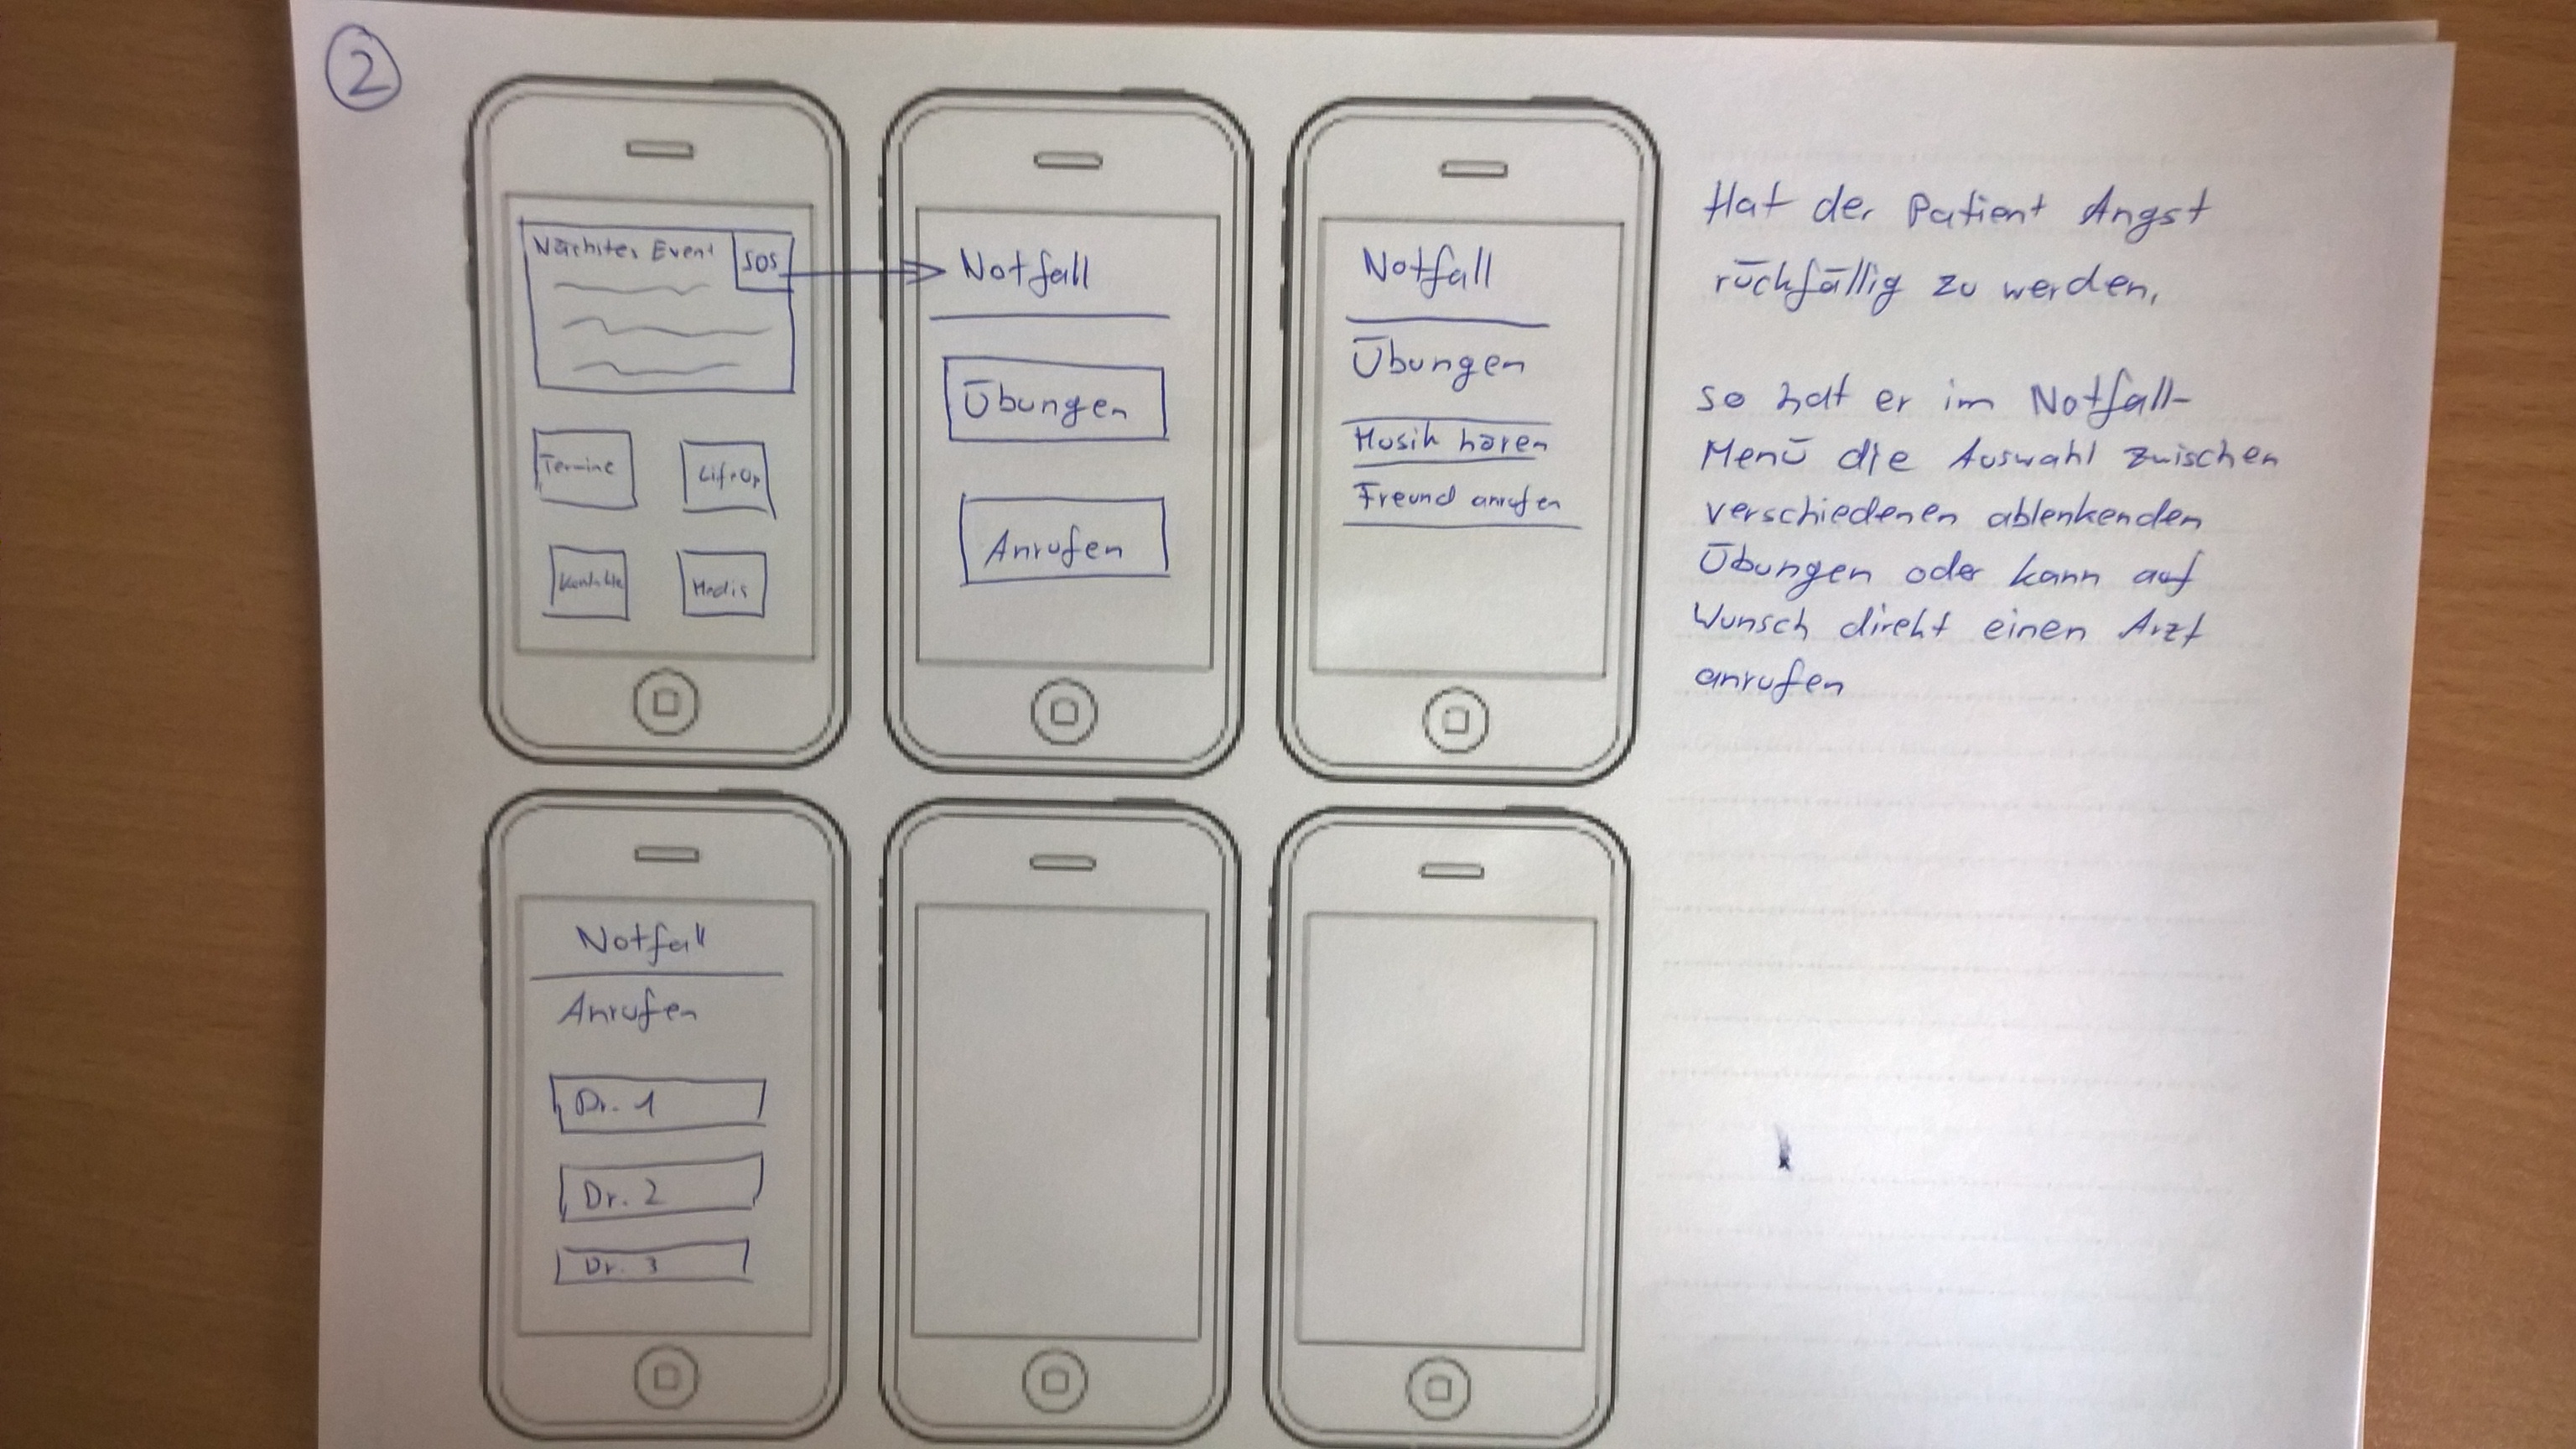 2
Nächstes Event
SOS
Termine
Kontakte
Medis
Notfall
Übungen
Anrufen
Notfall
Übungen
Musik hören
Freund anrufen
Notfall
Anrufen
Dr. 1
Dr. 2
Dr. 3
Hat der Patient Angst
rückfällig zu werden,
so hat er im Notfall-
Menü die Auswahl zwischen
verschiedenen ablenkenden
Übungen oder kann auf
Wunsch direkt einen Arzt
anrufen